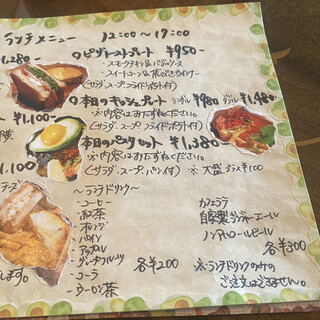 ランチメニュー 12:00～17:00
1,280-
○ピザトーストプレート ¥950-
・スモークチキン&バジルソース
・スイートコーン&
(サラダ、スープ、フライドポテト付)
○本日のキッシュプレート シングル ¥980 ダブル ¥1,480-
※内容はおたずねください。
(サラダ、スープ、フライドポテト付)
¥1,100-
本日のベーグルセット ¥1,380
※内容はおたずねください。
(サラダ、スープ、パン付) ※大盛プラス¥100
1,100
～ランチドリンク～
・コーヒー
・紅茶
・オレンジ
・パイン
・アップル
・グレープフルーツ
・コーラ
・ウーロン茶
各¥200
カフェラテ
自家製ジンジャーエール
ノンアルコールビール
各¥300
※ランチドリンクのみの
ご注文はできません。
します。